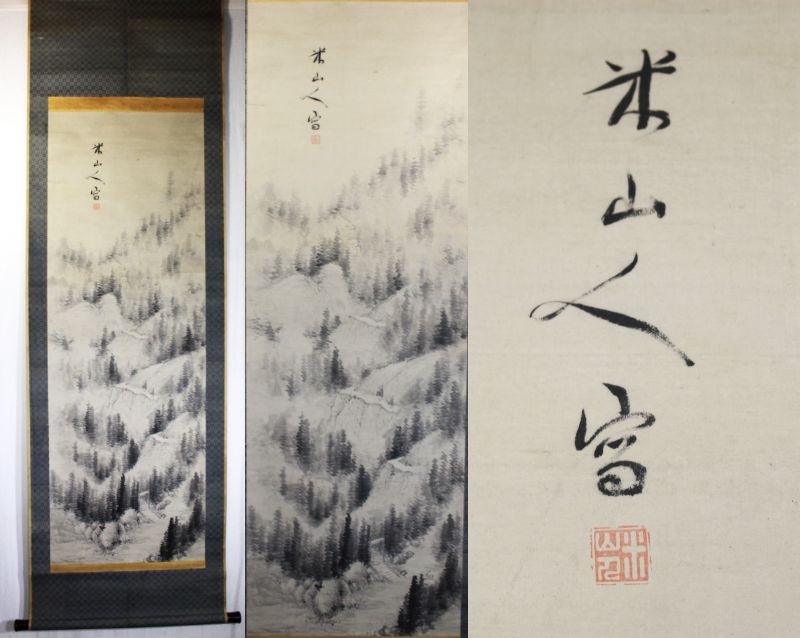 米山人寫
米山人寫
米山人寫
米山人